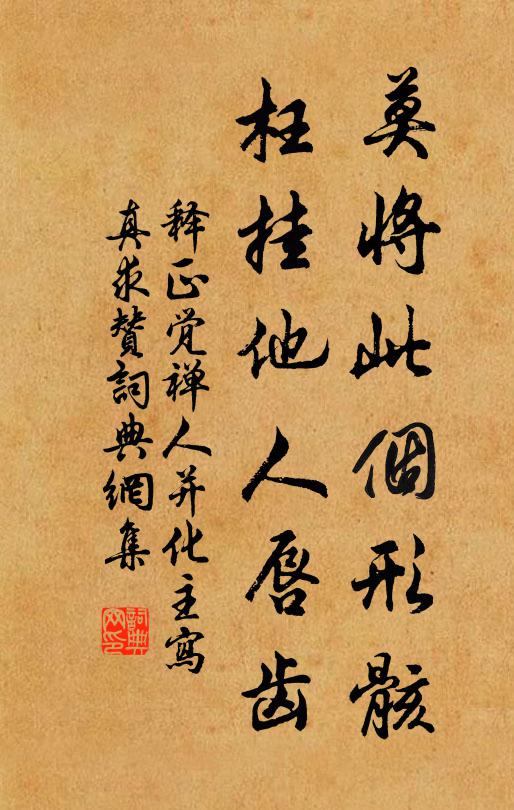 莫將此個形骸
枉挂他人唇齿
释正觉禅人并化主寫
真求赞詞典網集
詞典网印